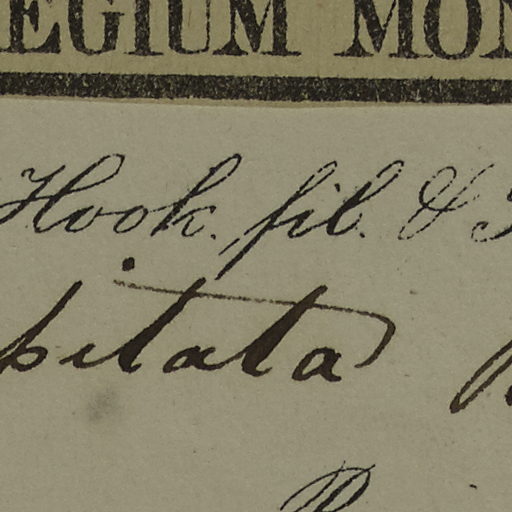 EGIUM MON
Hook. fil. &
pitata